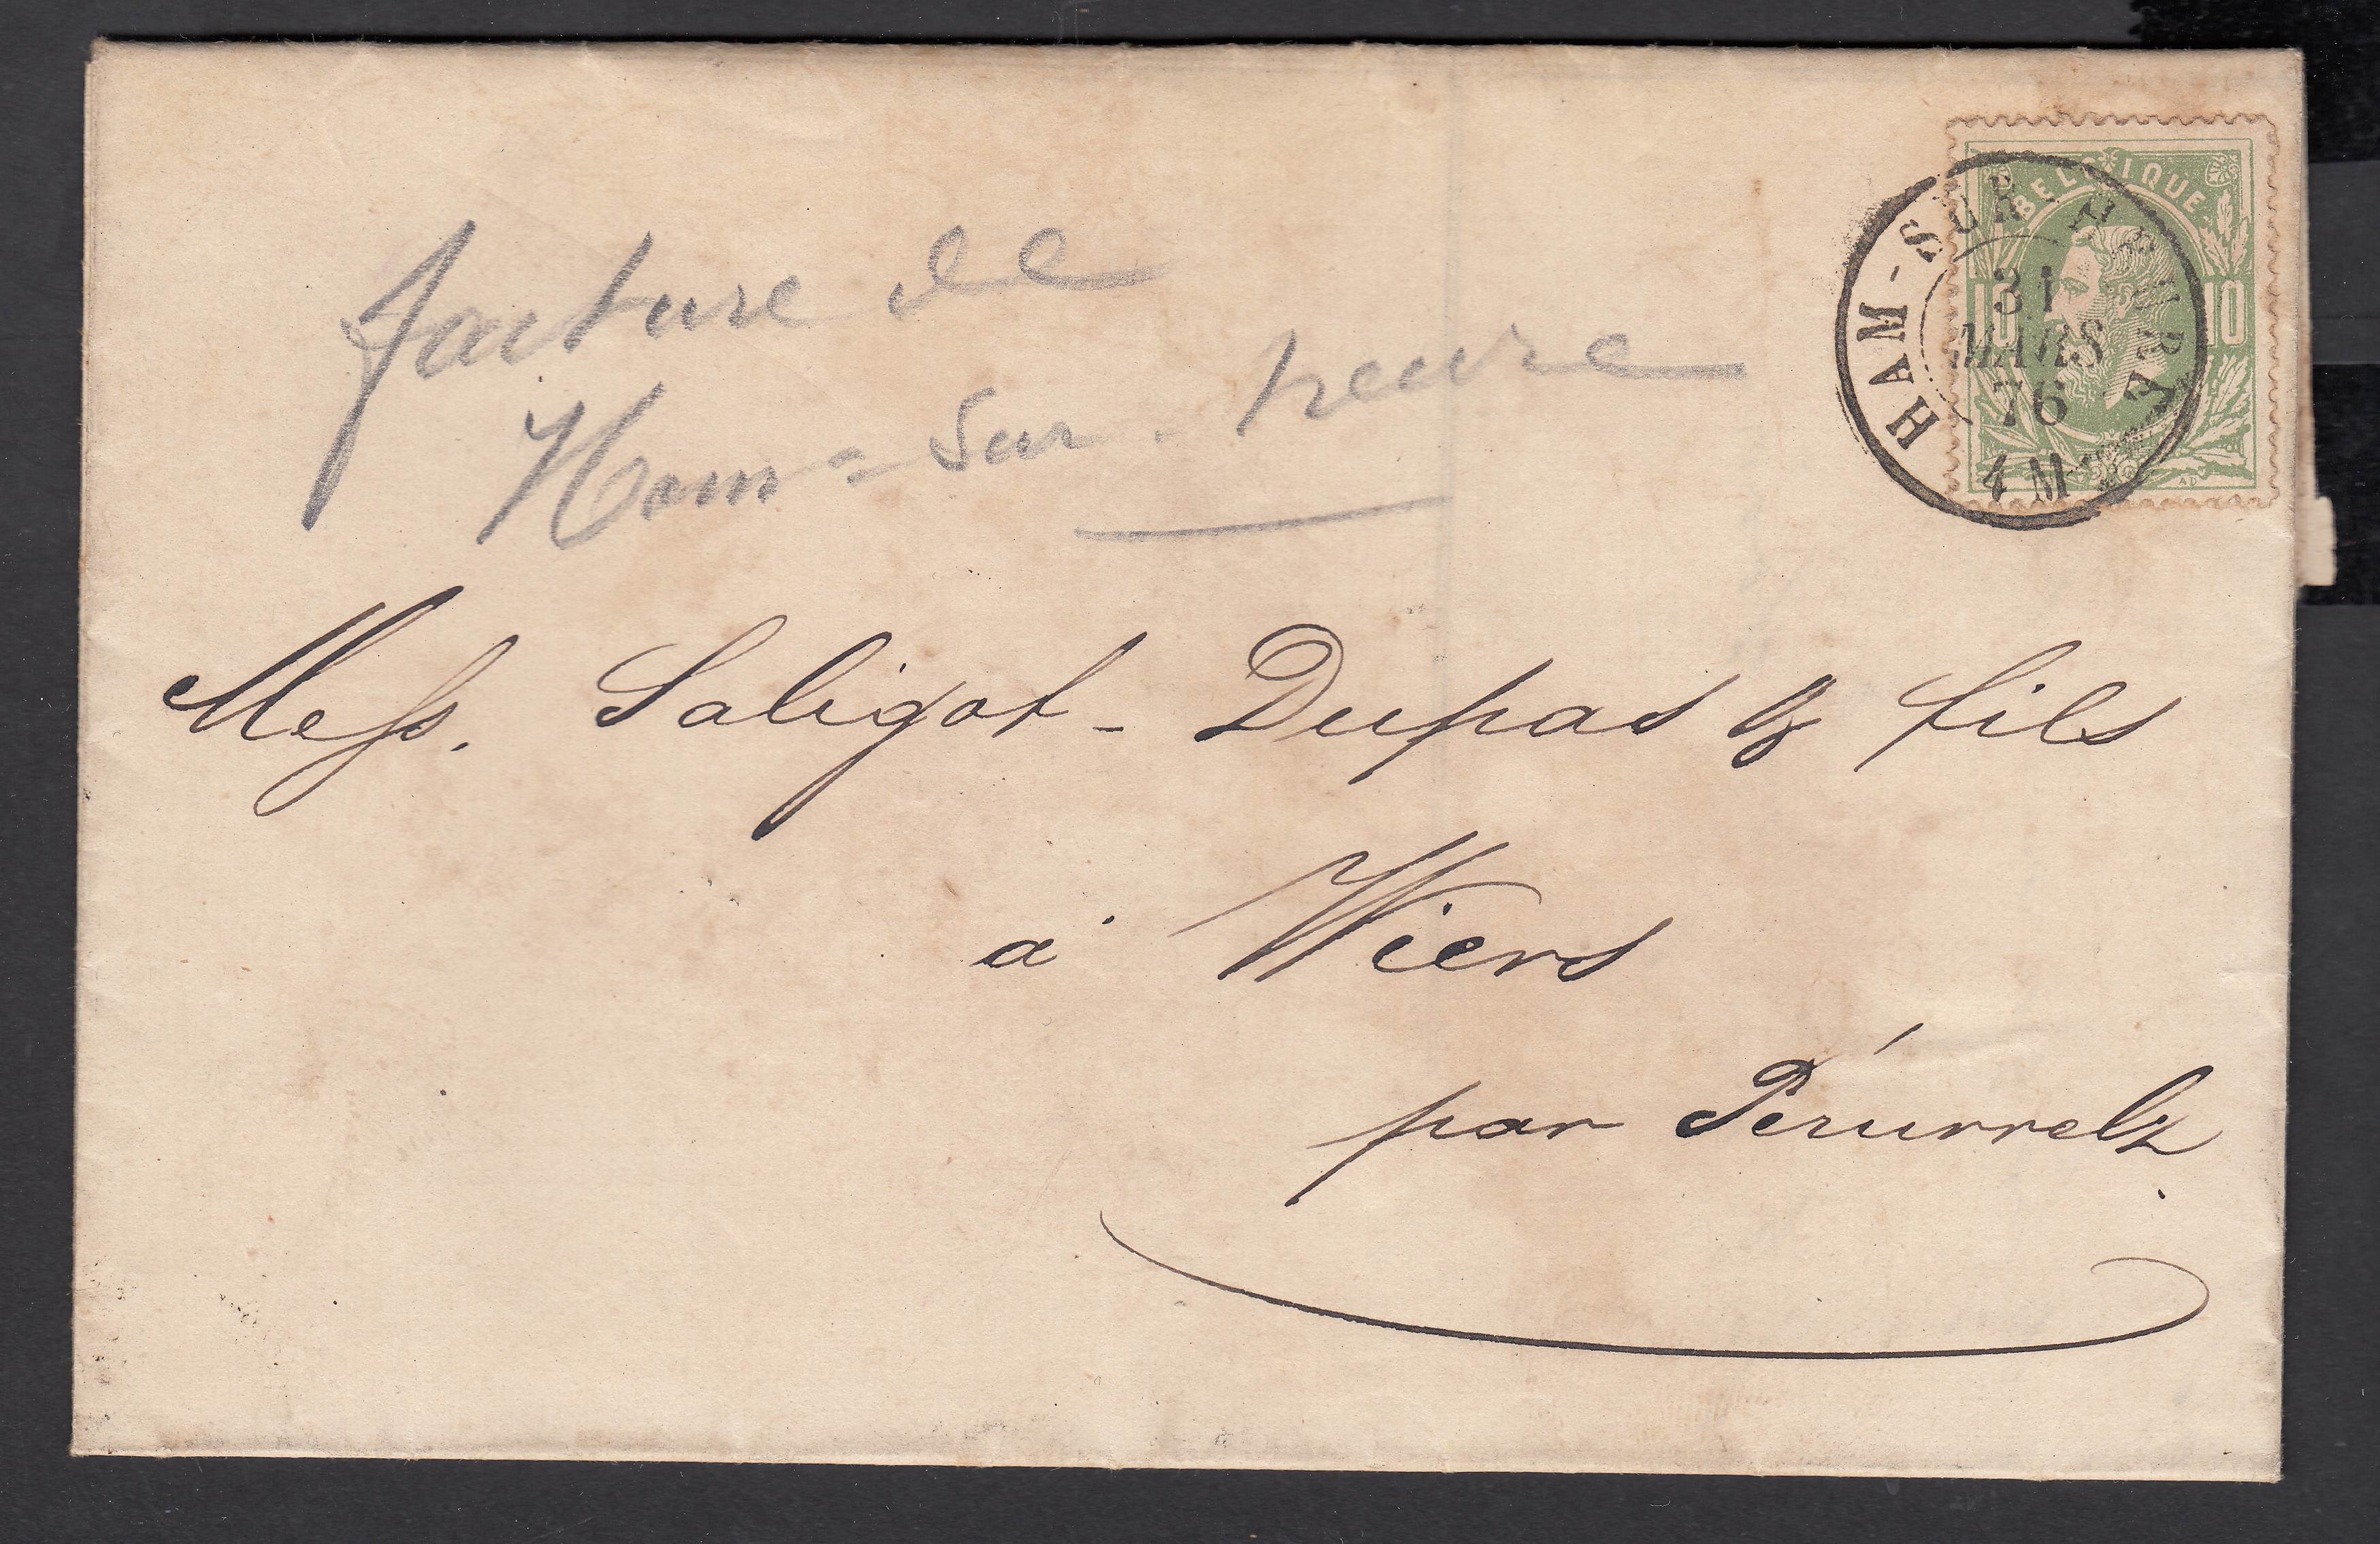 facture de
Ham=Sur-heure
BELGIQUE
10 10
HAM-SUR-HEURE
31
MARS
76
4 M
Mess. Saligot-Dupas & fils
à Wiers
par Péruwelz